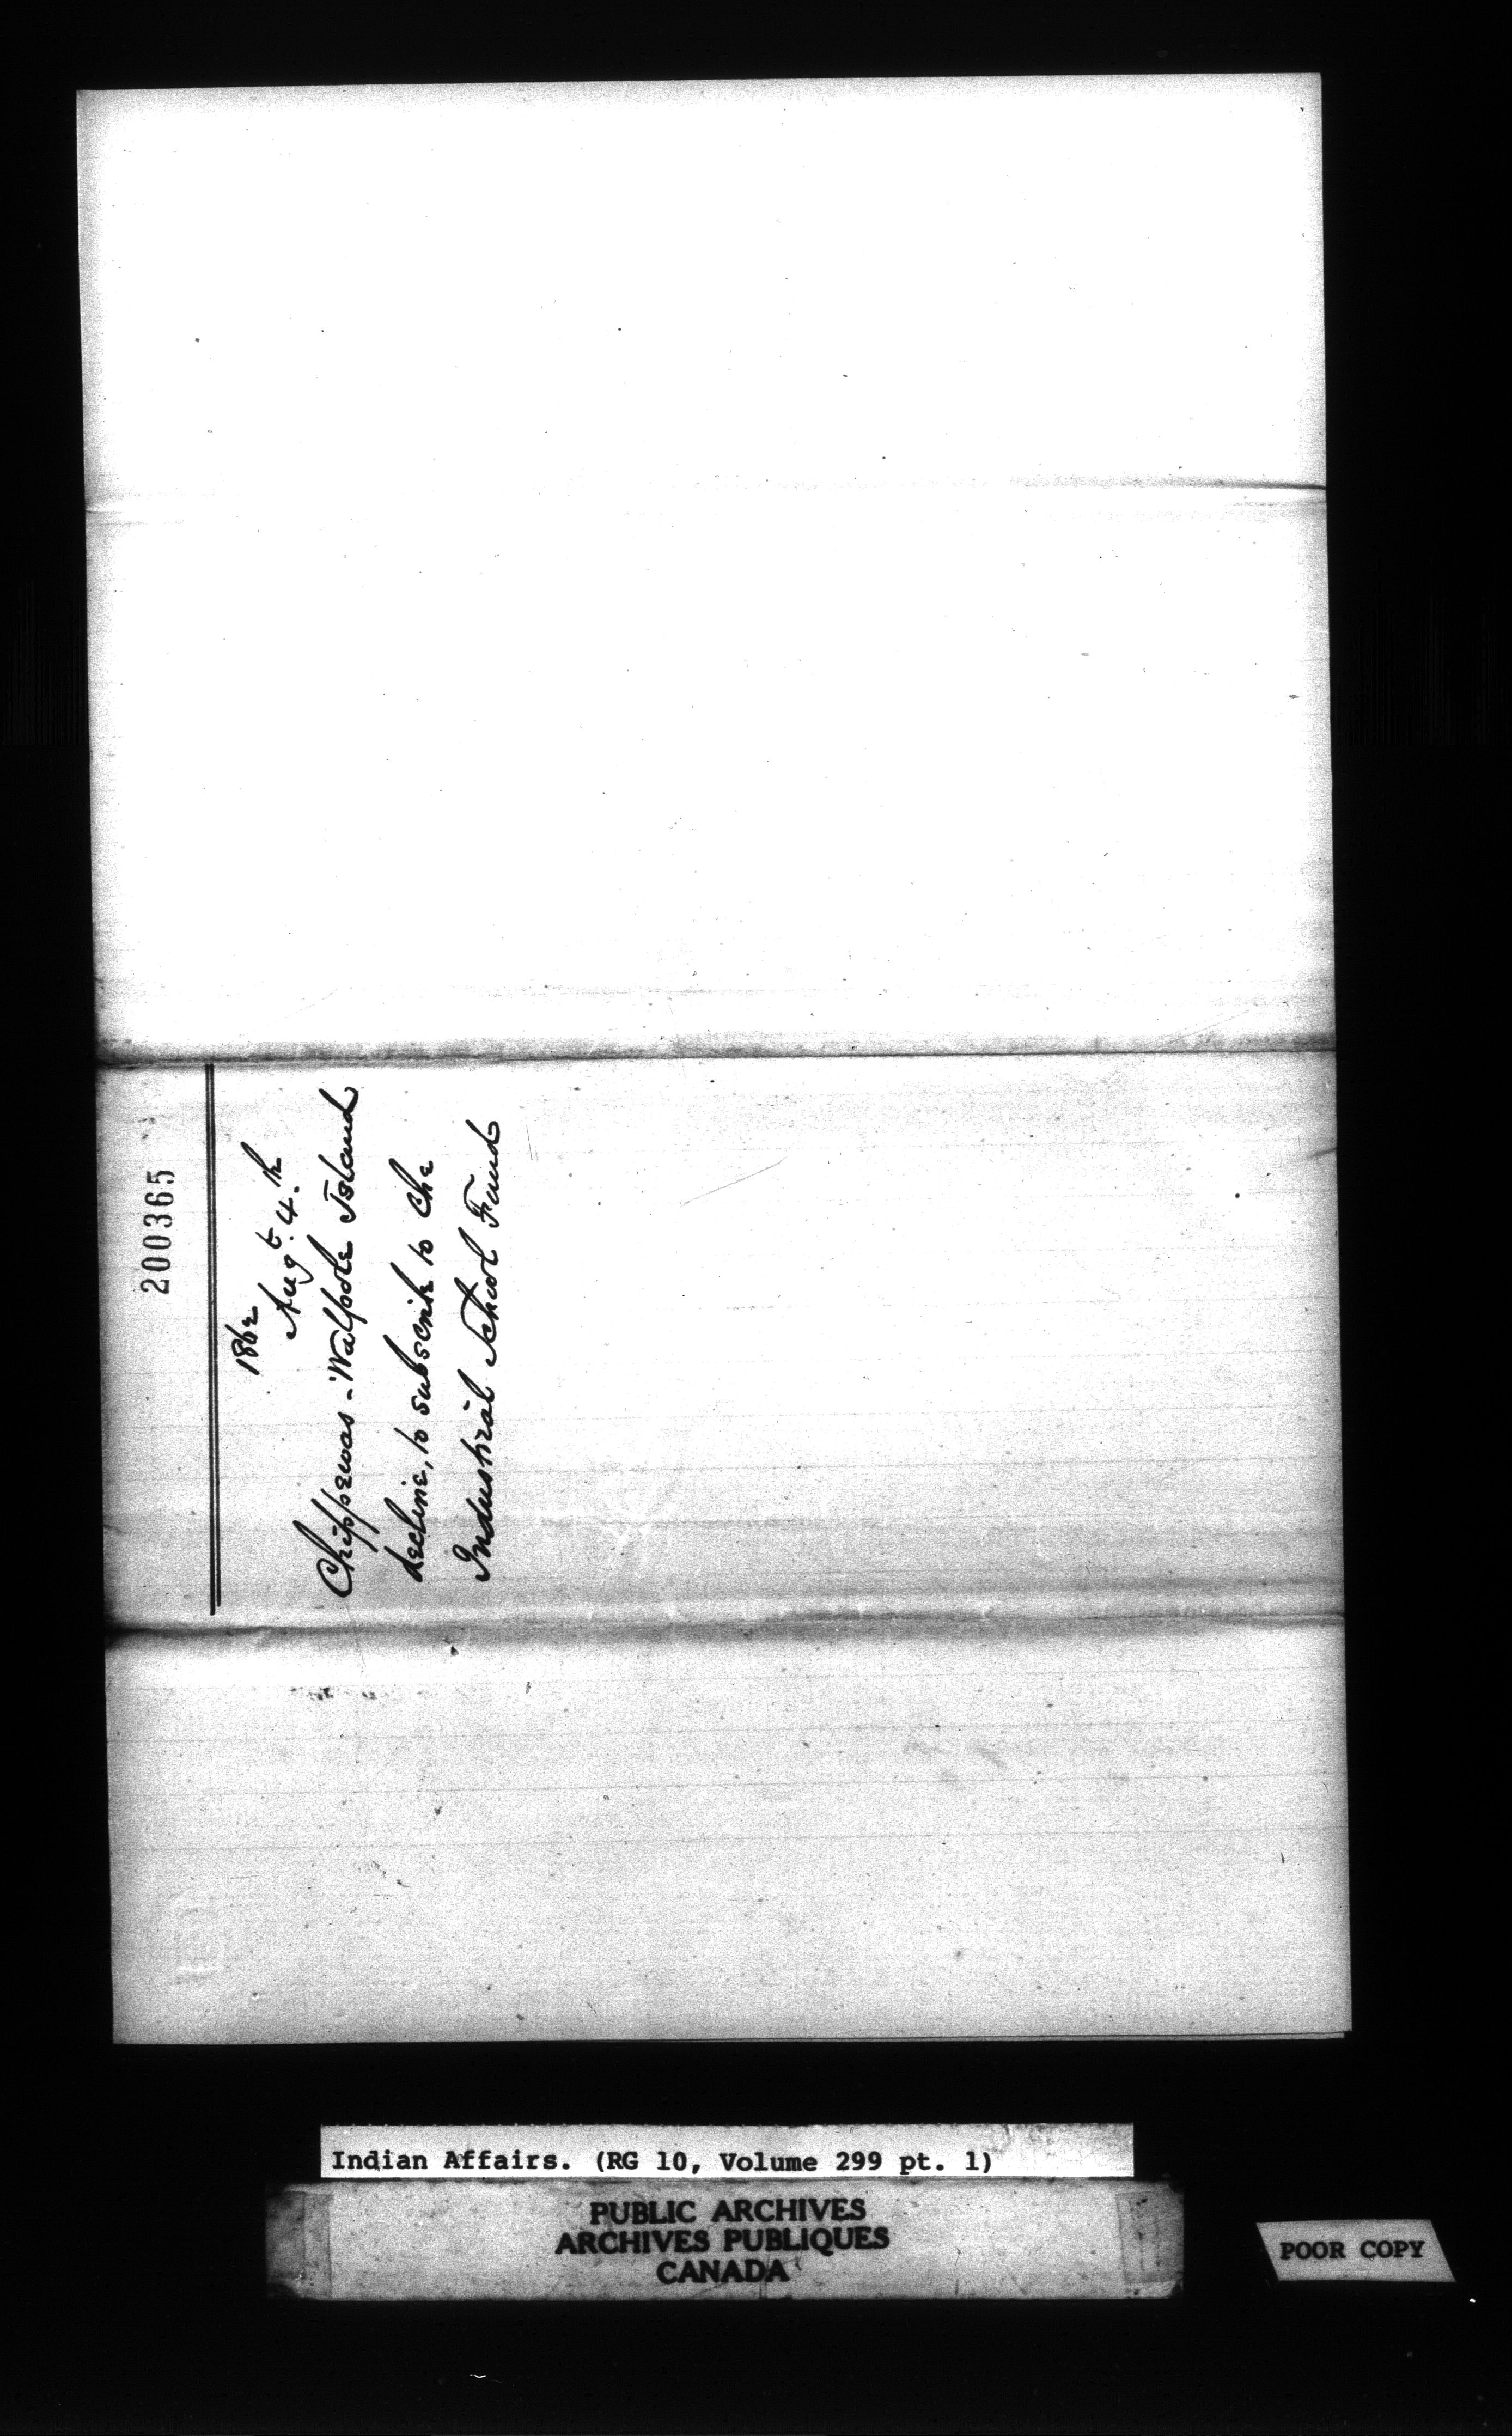 200365
1862
Augt. 4.th
Chippewas - Walpole Island
decline, to subscribe to the
Industrial School Fund
Indian Affairs. (RG 10, Volume 299 pt. 1)
PUBLIC ARCHIVES
ARCHIVES PUBLIQUES
CANADA
POOR COPY